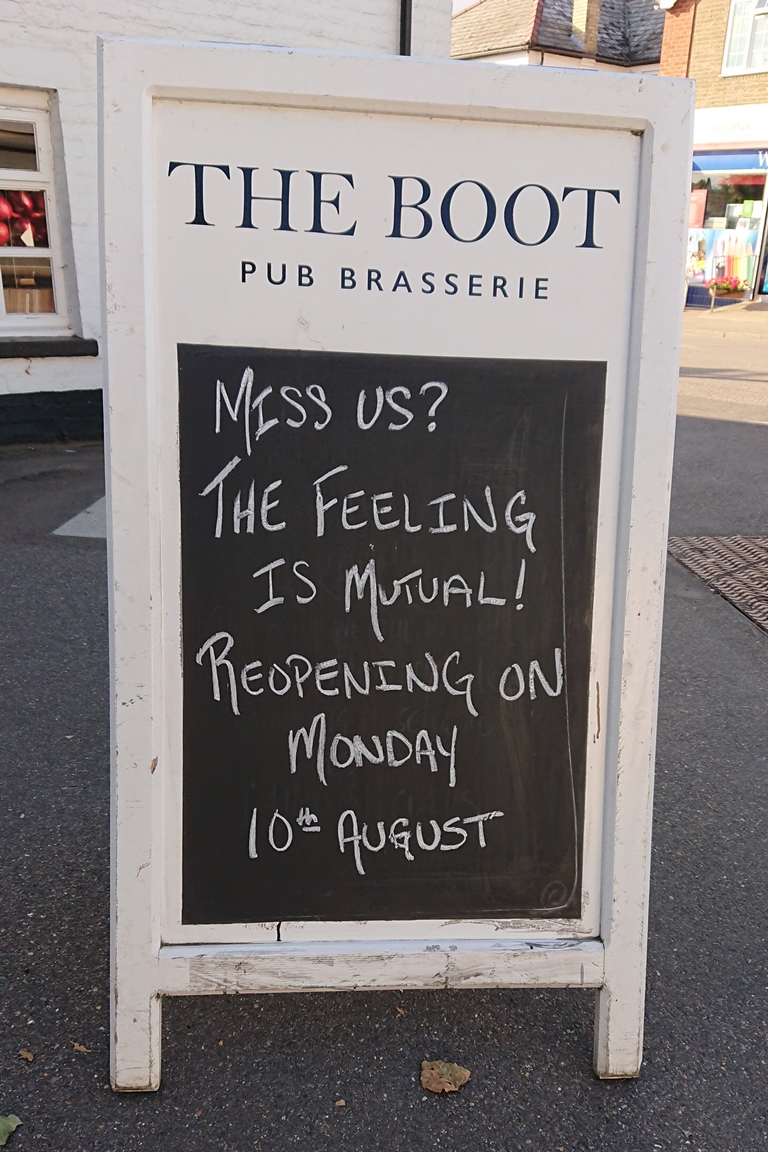 THE BOOT
PUB BRASSERIE
MISS US?
THE FEELING
IS MUTUAL!
REOPENING ON
MONDAY
10th AUGUST